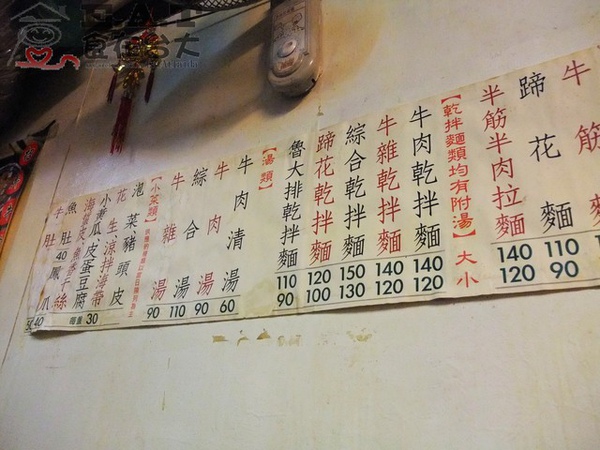 牛筋麵
蹄花麵 110 90
半筋半肉拉麵 140 120
【乾拌麵類均有附湯】大小
牛肉乾拌麵 140 120
牛雜乾拌麵 140 120
綜合乾拌麵 150 130
蹄花乾拌麵 120 100
魯大排乾拌麵 110 90
【湯類】
牛肉清湯 60
牛肉湯 90
綜合湯 110
牛雜湯 90
【小菜類】
泡菜、豬頭皮
花生、涼拌海帶
小黃瓜皮蛋豆腐
30
40
40